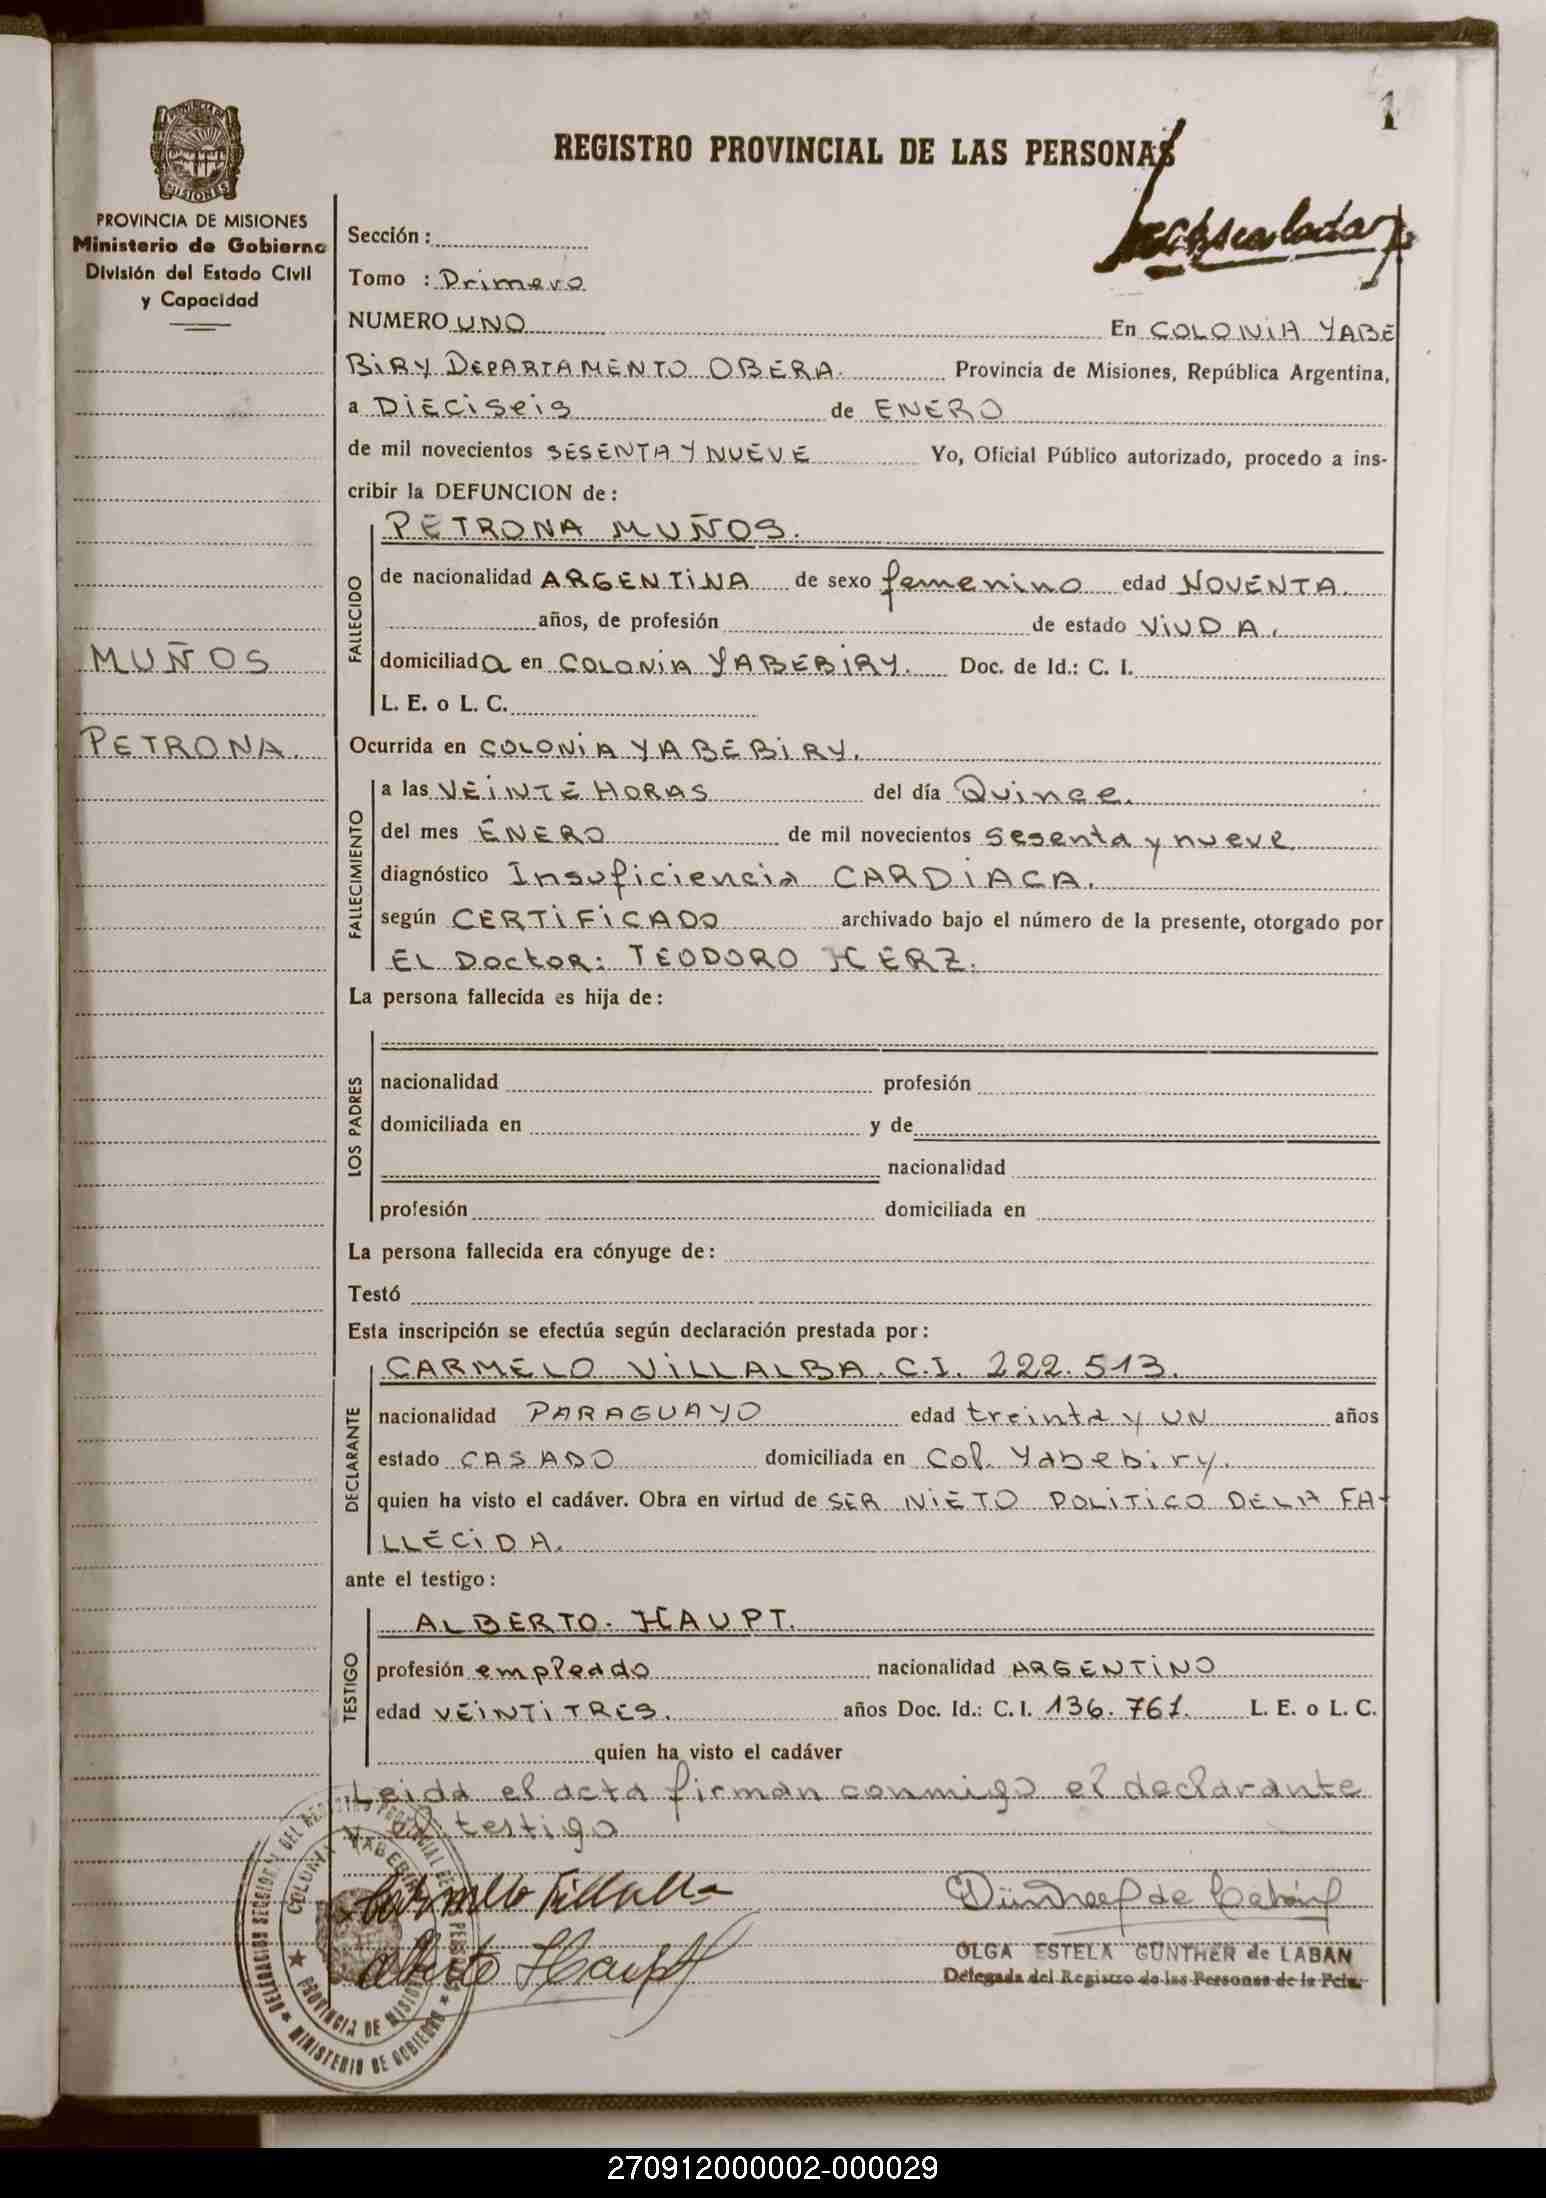 1
PROVINCIA DE MISIONES
Ministerio de Gobierno
División del Estado Civil
y Capacidad
MUÑOS
PETRONA.
REGISTRO PROVINCIAL DE LAS PERSONAS
Sección :
Tomo : Primero
NUMERO UNO En COLONIA YABE
BIRY DEPARTAMENTO OBERA. Provincia de Misiones, República Argentina,
a DIECISEIS de ENERO
de mil novecientos SESENTA Y NUEVE Yo, Oficial Público autorizado, procedo a ins-
cribir la DEFUNCION de :
FALLECIDO
PETRONA MUÑOS.
de nacionalidad ARGENTINA de sexo femenino edad NOVENTA.
años, de profesión de estado VIUDA.
domiciliada en COLONIA YABEBIRY. Doc. de Id.: C. I.
L. E. o L. C.
Ocurrida en COLONIA YABEBIRY.
FALLECIMIENTO
a las VEINTE HORAS del día Quince.
del mes ENERO de mil novecientos sesenta y nueve
diagnóstico Insuficiencia CARDIACA.
según CERTIFICADO archivado bajo el número de la presente, otorgado por
EL Doctor: TEODORO HERZ.
La persona fallecida es hija de :
LOS PADRES
nacionalidad profesión
domiciliada en y de
nacionalidad
profesión domiciliada en
La persona fallecida era cónyuge de :
Testó
Esta inscripción se efectúa según declaración prestada por :
DECLARANTE
CARMELO VILLALBA. C.I. 222.513.
nacionalidad PARAGUAYO edad treinta y UN años
estado CASADO domiciliada en Col. Yabebiry.
quien ha visto el cadáver. Obra en virtud de SER NIETO POLITICO DE LA FA-
LLECIDA.
ante el testigo :
TESTIGO
ALBERTO. HAUPT.
profesión empleado nacionalidad ARGENTINO
edad VEINTITRES. años Doc. Id.: C. I. 136.761. L. E. o L. C.
quien ha visto el cadáver
Leida el acta firman conmigo el declarante
y el testigo
Carmelo Villalba
Alberto Haupt
OLGA ESTELA GÜNTHER de LABAN
Delegada del Registro de las Personas de la Pcia.
DELEGACION SECCIONAL DEL REGISTRO PROVINCIAL DE LAS PERSONAS
COLONIA YABEBIRY
PROVINCIA DE MISIONES
MINISTERIO DE GOBIERNO
270912000002-000029